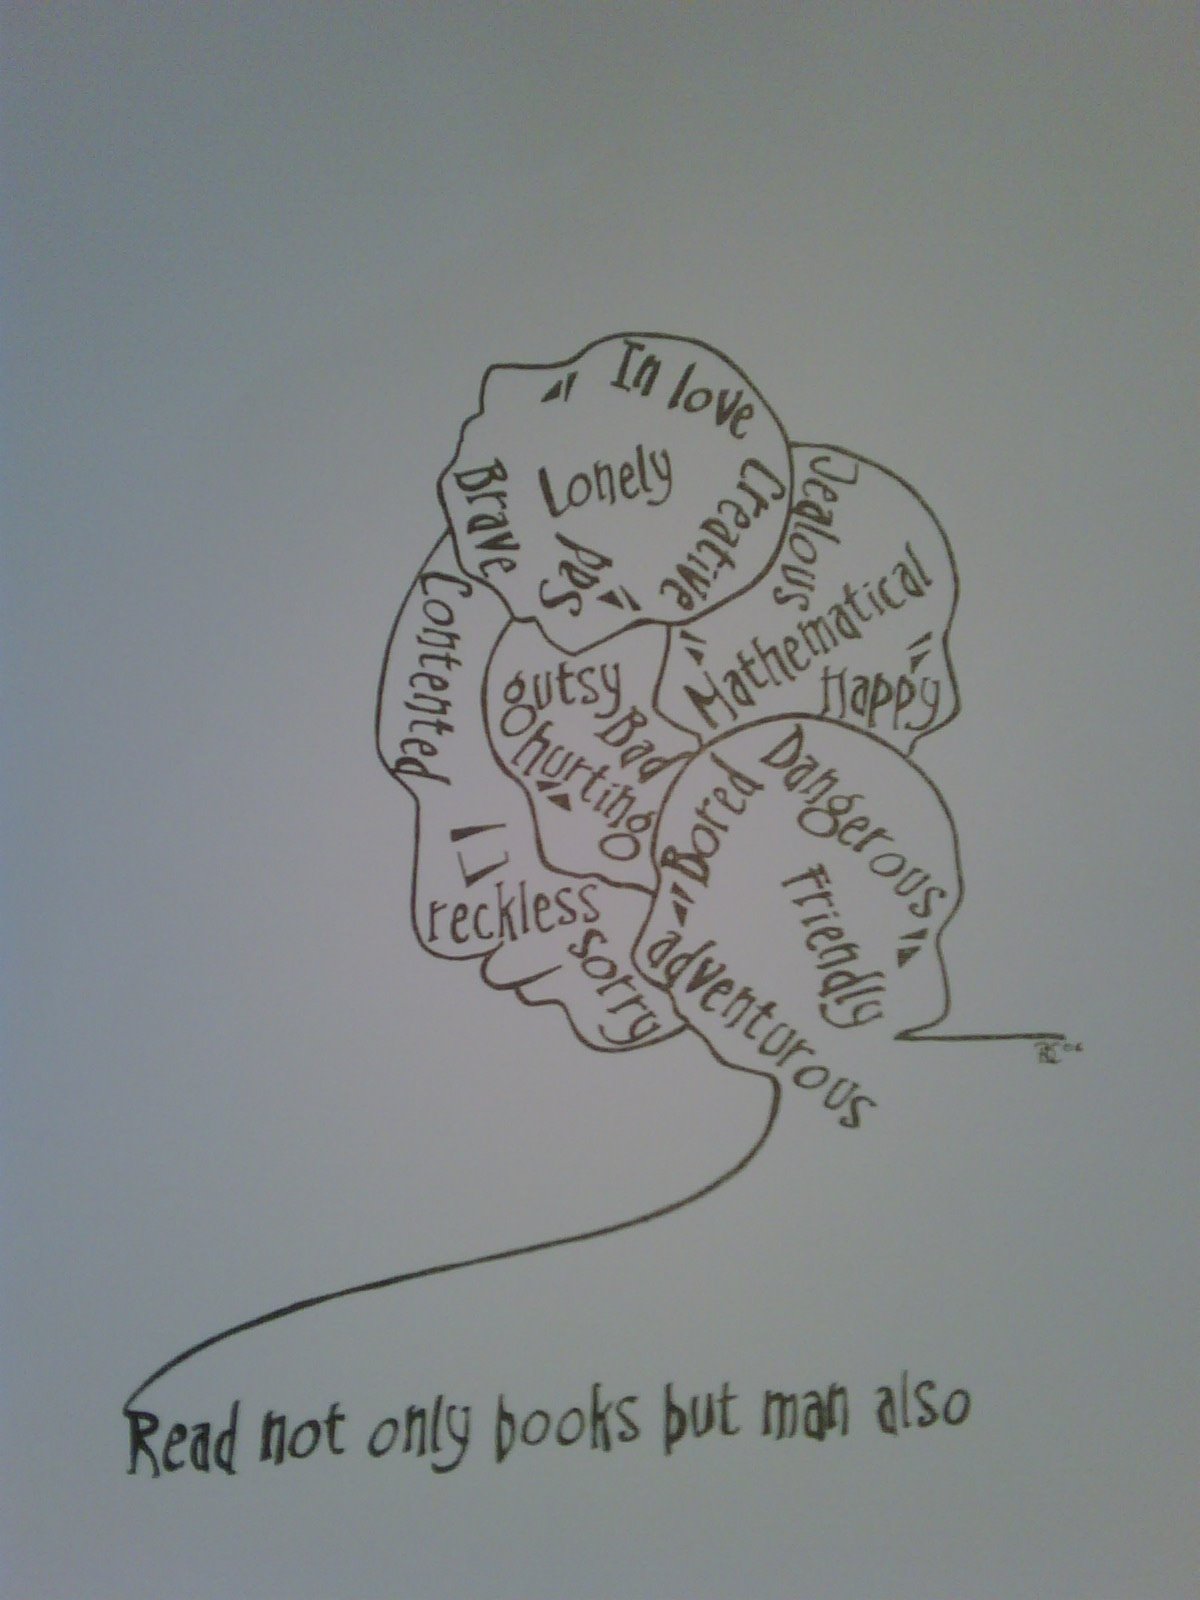 In love
Lonely
Creative
Brave
Sad
Jealous
Mathematical
Happy
Contented
gutsy
Bad
hurting
Dangerous
Bored
Friendly
reckless
sorry
adventurous
Read not only books but man also